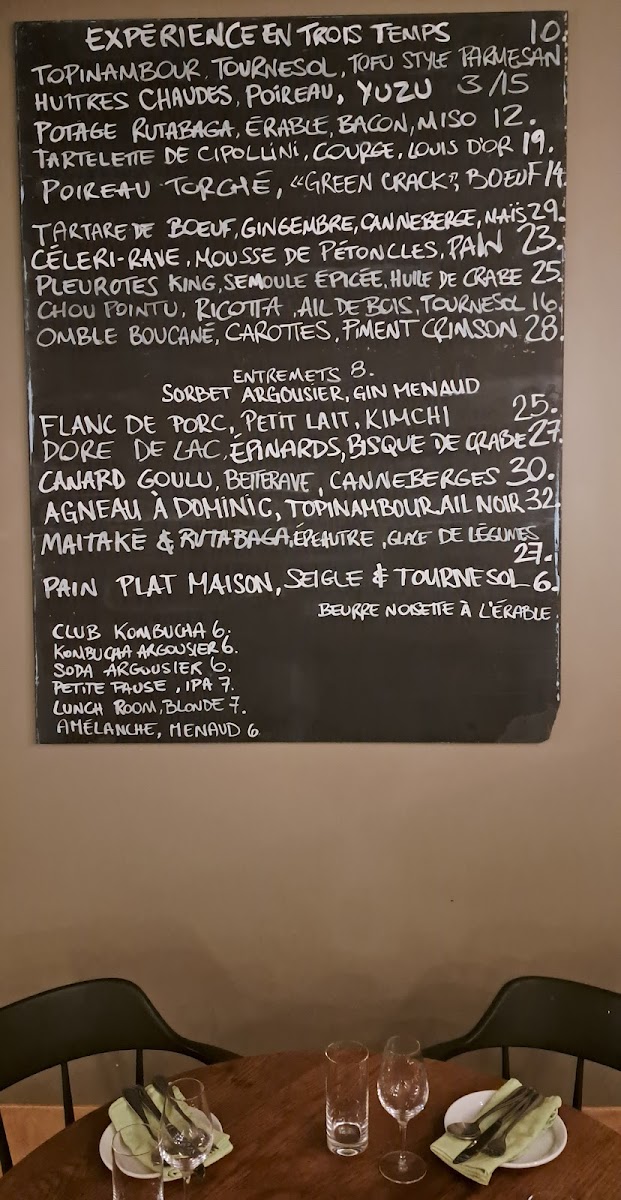 EXPÉRIENCE EN TROIS TEMPS 10.
TOPINAMBOUR, TOURNESOL, TOFU STYLE PARMESAN
HUITRES CHAUDES, POIREAU, YUZU 3/15
POTAGE RUTABAGA, ÉRABLE, BACON, MISO 12.
TARTELETTE DE CIPOLLINI, COURGE, LOUIS D'OR 19.
POIREAU TORCHÉ, "GREEN CRACK", BOEUF 14.
TARTARE DE BOEUF, GINGEMBRE, CANNEBERGE, MAÏS 29.
CÉLERI-RAVE, MOUSSE DE PÉTONCLES, PAIN 23.
PLEUROTES KING, SEMOULE ÉPICÉE, HUILE DE CRABE 25.
CHOU POINTU, RICOTTA, AIL DE BOIS, TOURNESOL 16.
OMBLE BOUCANÉ, CAROTTES, PIMENT CRIMSON 28.
ENTREMETS 8.
SORBET ARGOUSIER, GIN MENAUD
FLANC DE PORC, PETIT LAIT, KIMCHI 25.
DORÉ DE LAC, ÉPINARDS, BISQUE DE CRABE 27.
CANARD GOULU, BETTERAVE, CANNEBERGES 30.
AGNEAU À DOMINIC, TOPINAMBOUR, AIL NOIR 32
MAITAKE & RUTABAGA, ÉPEAUTRE, GLACE DE LÉGUMES
27.
PAIN PLAT MAISON, SEIGLE & TOURNESOL 6.
BEURRE NOISETTE À L'ÉRABLE.
CLUB KOMBUCHA 6.
KOMBUCHA ARGOUSIER 6.
SODA ARGOUSIER 6.
PETITE PAUSE, IPA 7.
LUNCH ROOM, BLONDE 7.
AMÉLANCHE, MENAUD 6